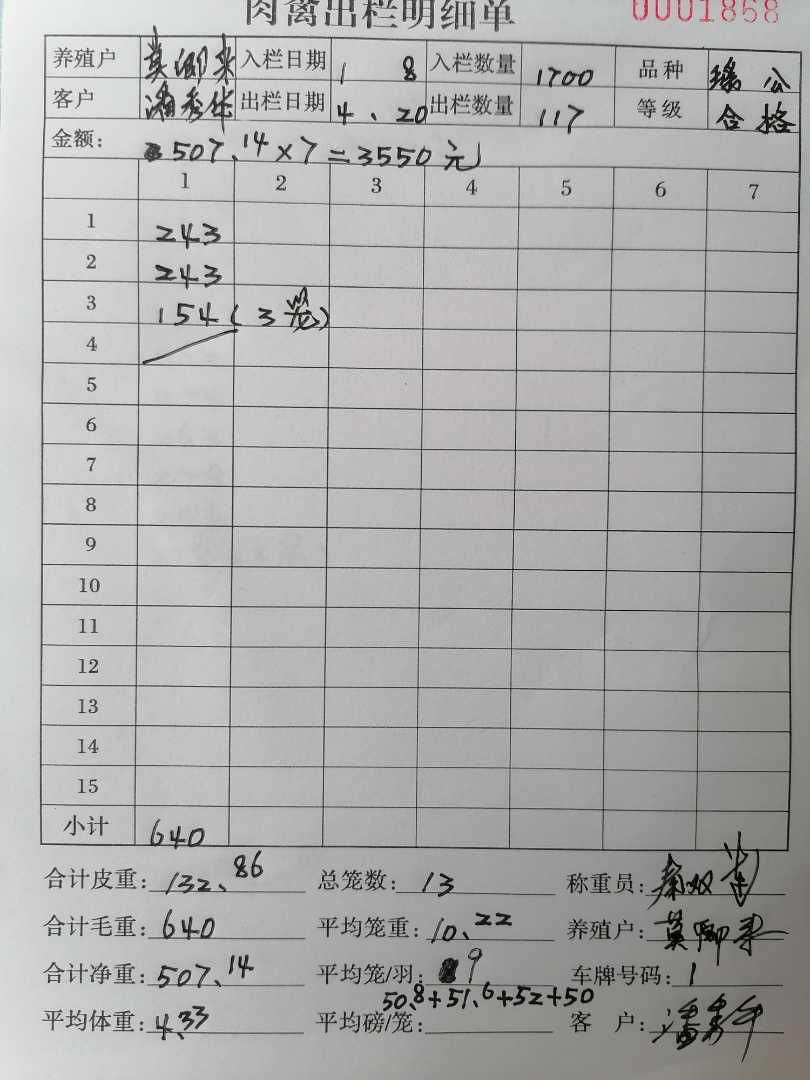 肉禽出栏明细单 0001868
养殖户 莫卿来 入栏日期 1 8 入栏数量 1700 品种 瑶公
客户 潘秀华 出栏日期 4、20 出栏数量 117 等级 合格
金额: 507.14×7=3550元
1 2 3 4 5 6 7
1 243
2 243
3 154(3笼)
4
5
6
7
8
9
10
11
12
13
14
15
小计 640
合计皮重: 132.86 总笼数: 13 称重员:
合计毛重: 640 平均笼重: 10.22 养殖户: 莫卿来
合计净重: 507.14 平均笼/羽: 9 车牌号码: 1
50.8+51.6+52+50
平均体重: 4.33 平均磅/笼: 客 户: 潘秀华